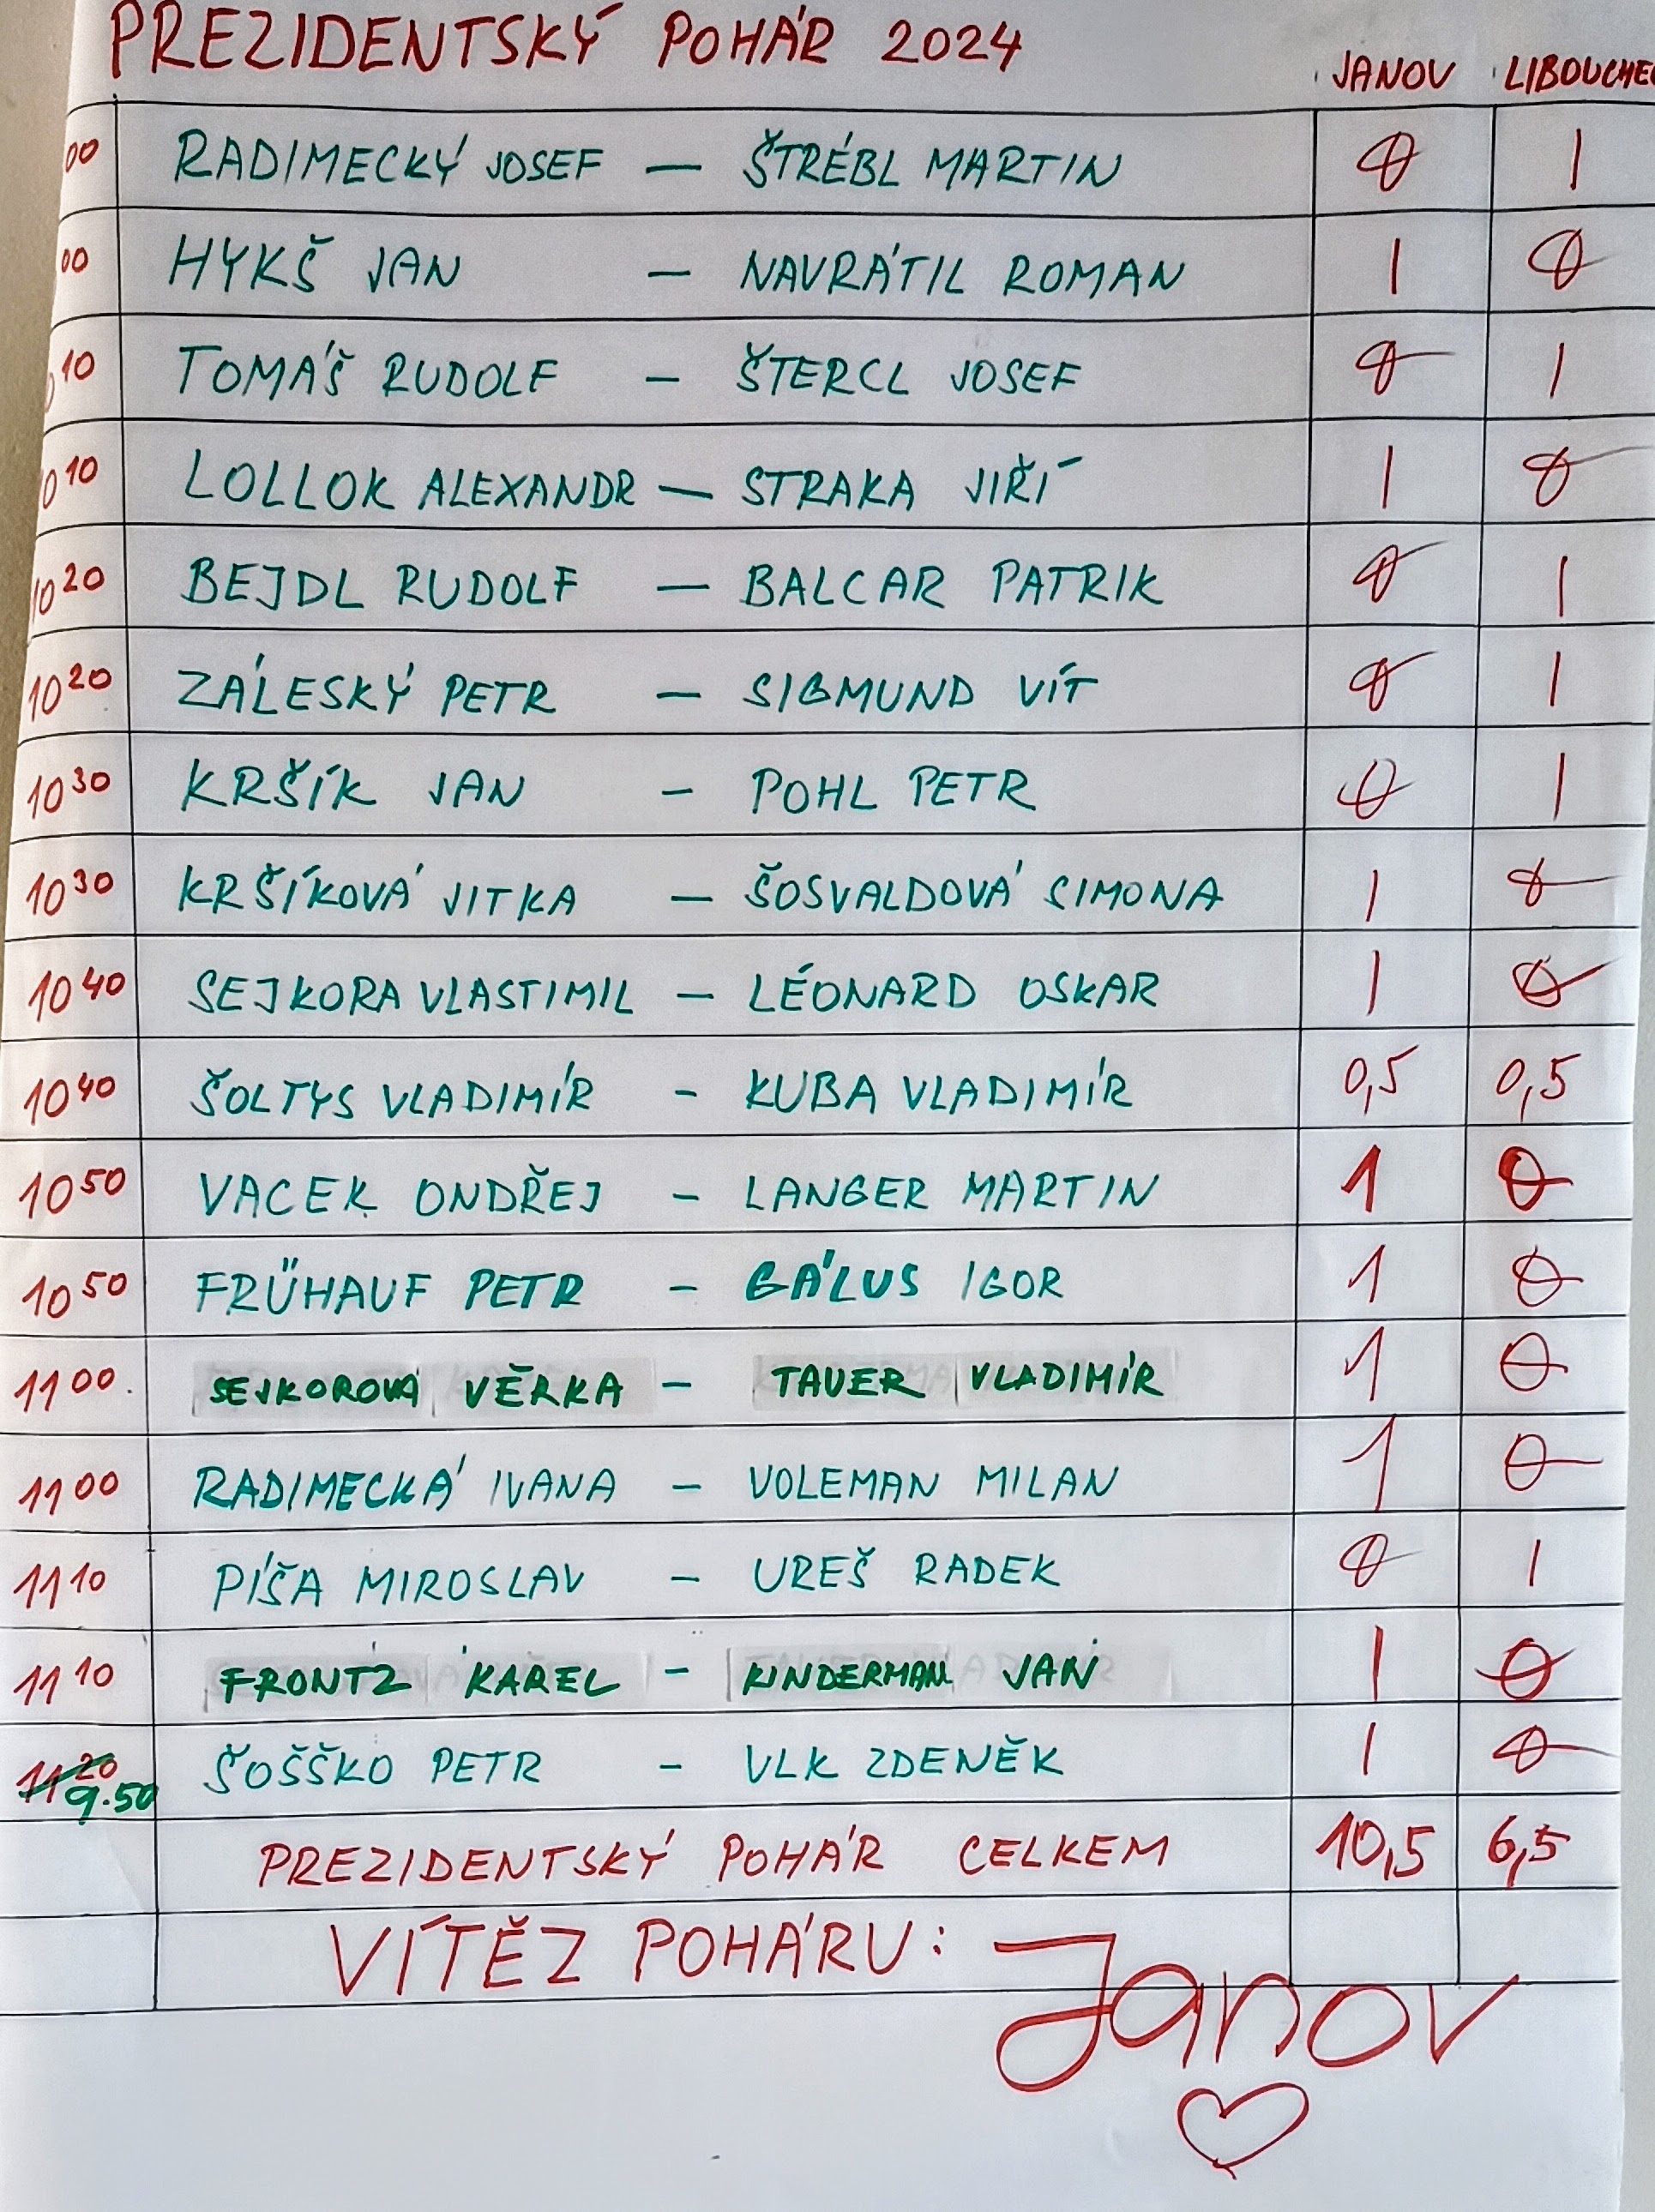 PREZIDENTSKÝ POHÁR 2024 JANOV LIBOUCHEC
00 RADIMECKÝ JOSEF — ŠTRÉBL MARTIN 0 1
00 HYKŠ JAN — NAVRÁTIL ROMAN 1 0
10 TOMÁŠ RUDOLF — ŠTERCL JOSEF 0 1
010 LOLLOK ALEXANDR — STRAKA JIŘÍ 1 0
1020 BEJDL RUDOLF — BALCAR PATRIK 0 1
1020 ZÁLESKÝ PETR — SIGMUND VÍT 0 1
1030 KRŠÍK JAN - POHL PETR 0 1
1030 KRŠÍKOVÁ JITKA — ŠOSVALDOVÁ SIMONA 1 0
1040 SEJKORA VLASTIMIL — LÉONARD OSKAR 1 0
1040 ŠOLTYS VLADIMÍR - KUBA VLADIMÍR 0,5 0,5
1050 VACEK ONDŘEJ - LANGER MARTIN 1 0
1050 FRÜHAUF PETR - GÁLUS IGOR 1 0
1100. SEJKOROVÁ VĚRKA - TAUER VLADIMÍR 1 0
1100 RADIMECKÁ IVANA - VOLEMAN MILAN 1 0
1110 PÍŠA MIROSLAV - UREŠ RADEK 0 1
1110 FRONTZ KAREL - KINDERMAN JAN 1 0
1120 9.50 ŠOŠŠKO PETR - VLK ZDENĚK 1 0
PREZIDENTSKÝ POHÁR CELKEM 10,5 6,5
VÍTĚZ POHÁRU: Janov